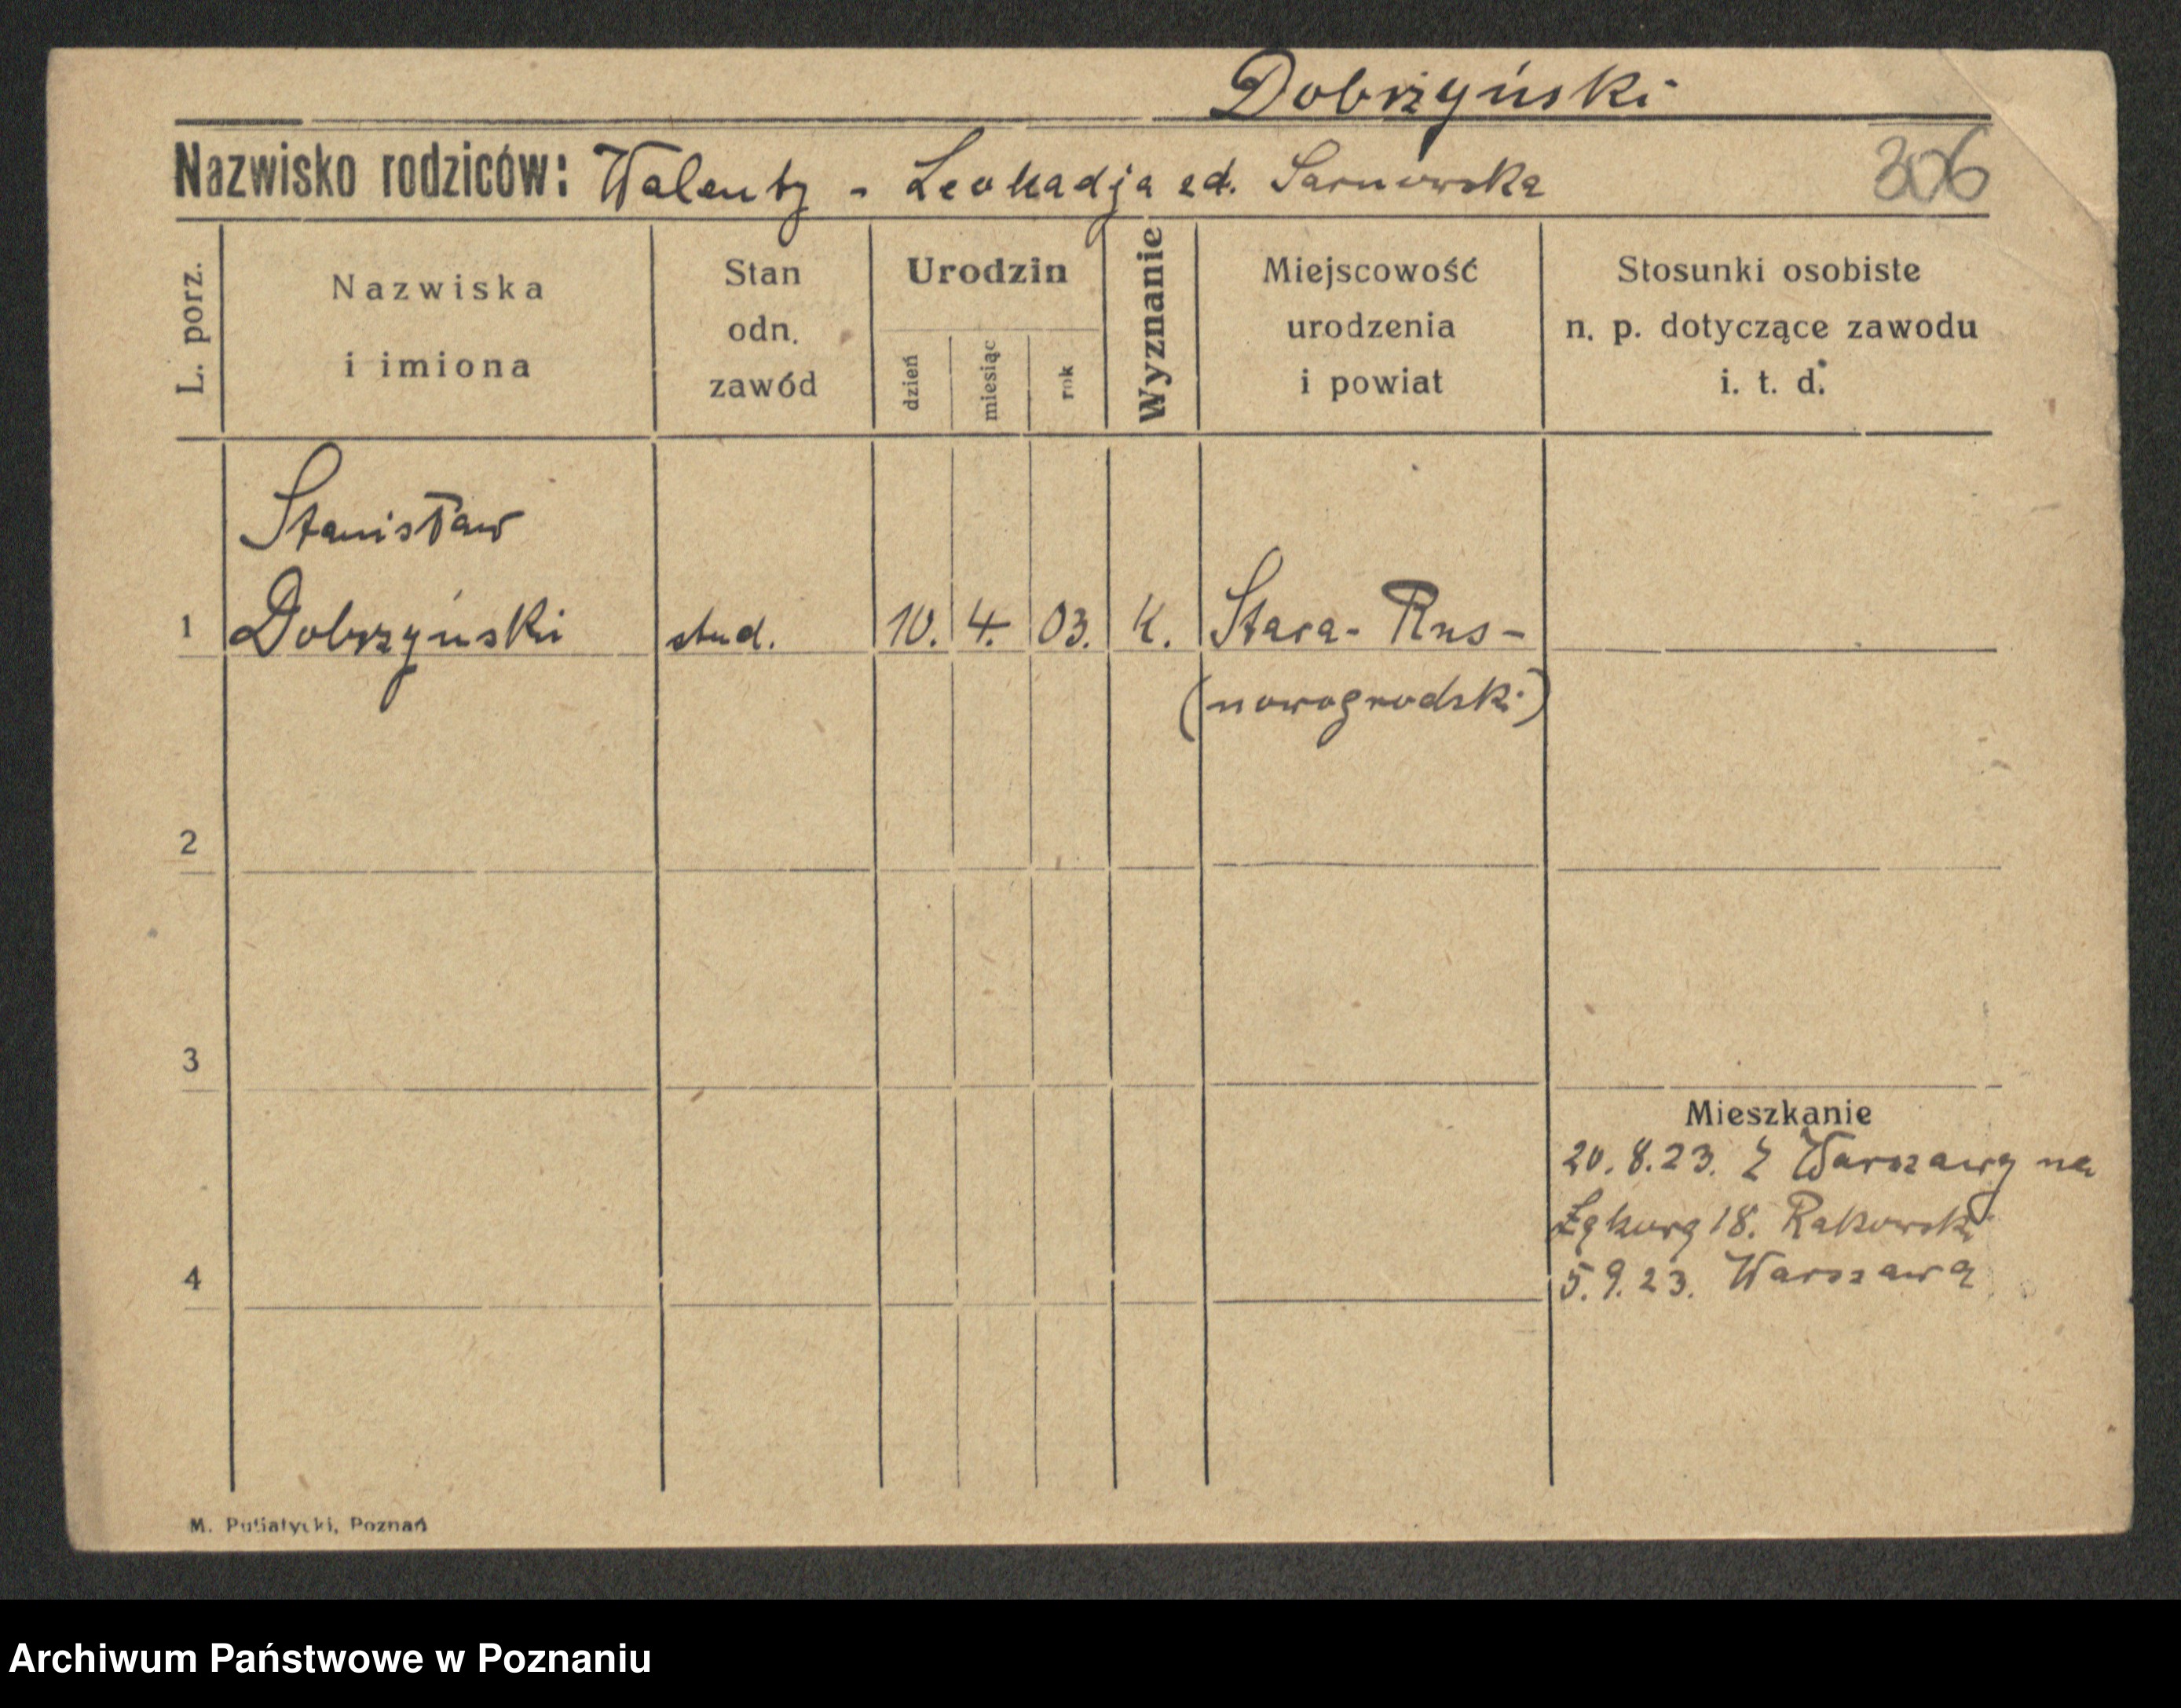 Dobrzyński
Nazwisko rodziców: Walenty - Leokadja zd. Sarnowska
306
L. porz.
Nazwiska
i imiona
Stan
odn.
zawód
Urodzin
dzień
miesiąc
rok
Wyznanie
Miejscowość
urodzenia
i powiat
Stosunki osobiste
n. p. dotyczące zawodu
i. t. d.
Stanisław
1 Dobrzyński stud. 10. 4. 03. K. Stara-Rus-
(nowogrodski)
2
3
Mieszkanie
20.8.23. Z Warszawy na
18. Rakowski
4
5.9.23. Warszawa
M. Putiatycki, Poznań
Archiwum Państwowe w Poznaniu